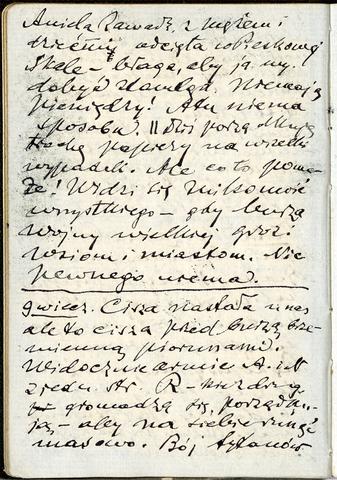 Aniela Zawadz. z mężem i
dziećmi odcięta w Pieskowej
Skale – błaga, aby ją wy-
dobyć stamtąd. Nie mają
pieniędzy! A tu niema
sposobu. Dziś porzą
trochę papiery na wszelki
wypadek. Ale co to pomo-
że! Widzi się znikomość
wszystkiego – gdy burza
wojny wielkiej grozi
wsiom i miastom. Nic
pewnego niema.
9 wiecz. Cisza nastała u nas
ale to cisza przed burzą brze-
mienną piorunami.
Widocznie armie A. i N
z jedn. str. R –
gromadzą się, porządku-
ją – aby na siebie runąć
masowo. Bój tytanów.